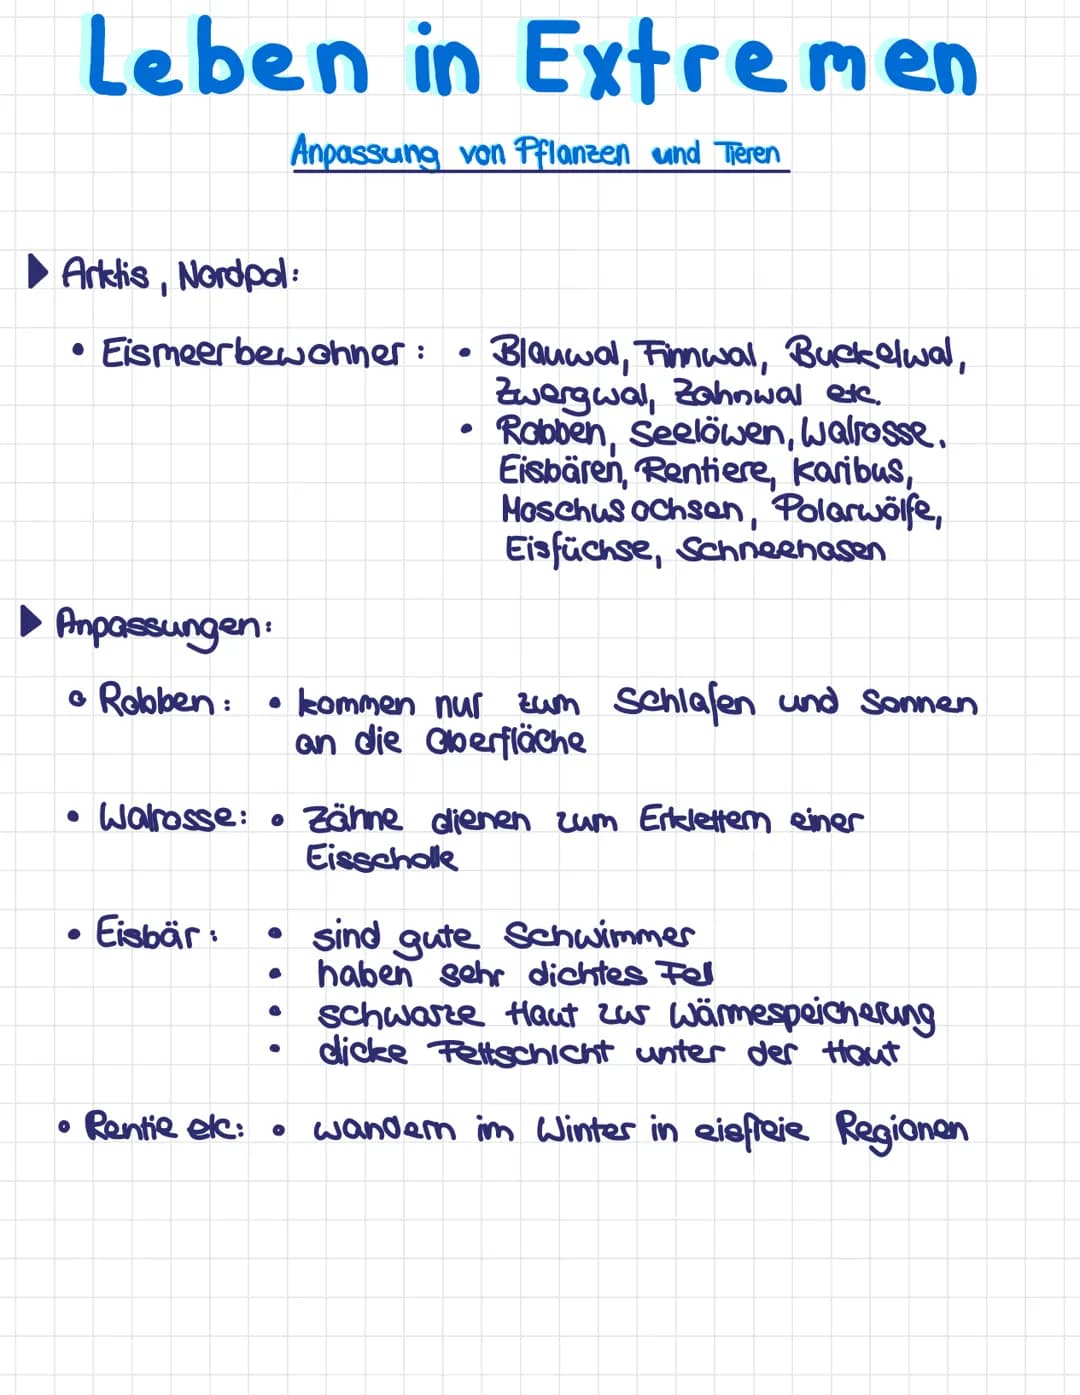 Leben in Extremen
Anpassung von Pflanzen und Tieren
Arktis, Nordpol:
• Eismeerbewohner: • Blauwal, Finnwal, Buckelwal,
Zwergwal, Zahnwal etc.
• Robben, Seelöwen, Walrosse,
Eisbären, Rentiere, Karibus,
Moschusochsen, Polarwölfe,
Eisfüchse, Schneehasen
Anpassungen:
• Robben: • kommen nur zum Schlafen und Sonnen
an die Oberfläche
• Walrosse: • Zähne dienen zum Erklettern einer
Eisscholle
• Eisbär: • sind gute Schwimmer
• haben sehr dichtes Fell
• schwarze Haut zur Wärmespeicherung
• dicke Fettschicht unter der Haut
• Rentie etc: • wandern im Winter in eisfreie Regionen